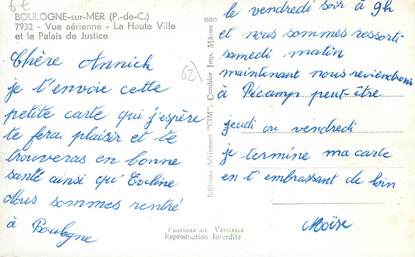 6€
BOULOGNE-sur-MER (P.-de-C.)
7932 - Vue aérienne - La Haute Ville
et le Palais de Justice
Chère Annick
je t'envoie cette
petite carte qui j'espère
te fera plaisir et te
trouveras en bonne
santé ainsi qu'Eveline
Nous sommes rentré
à Boulogne
62
Editions Aériennes "CIM", Combier Imp. Mâcon
PHOTOGRAPHIE VÉRITABLE
Reproduction Interdite
le vendredi soir à 9h
et nous sommes ressorti
samedi matin
maintenant nous reviendrons
à Fécamps peut-être
jeudi ou vendredi
je termine ma carte
en t'embrassant de loin
Moïse